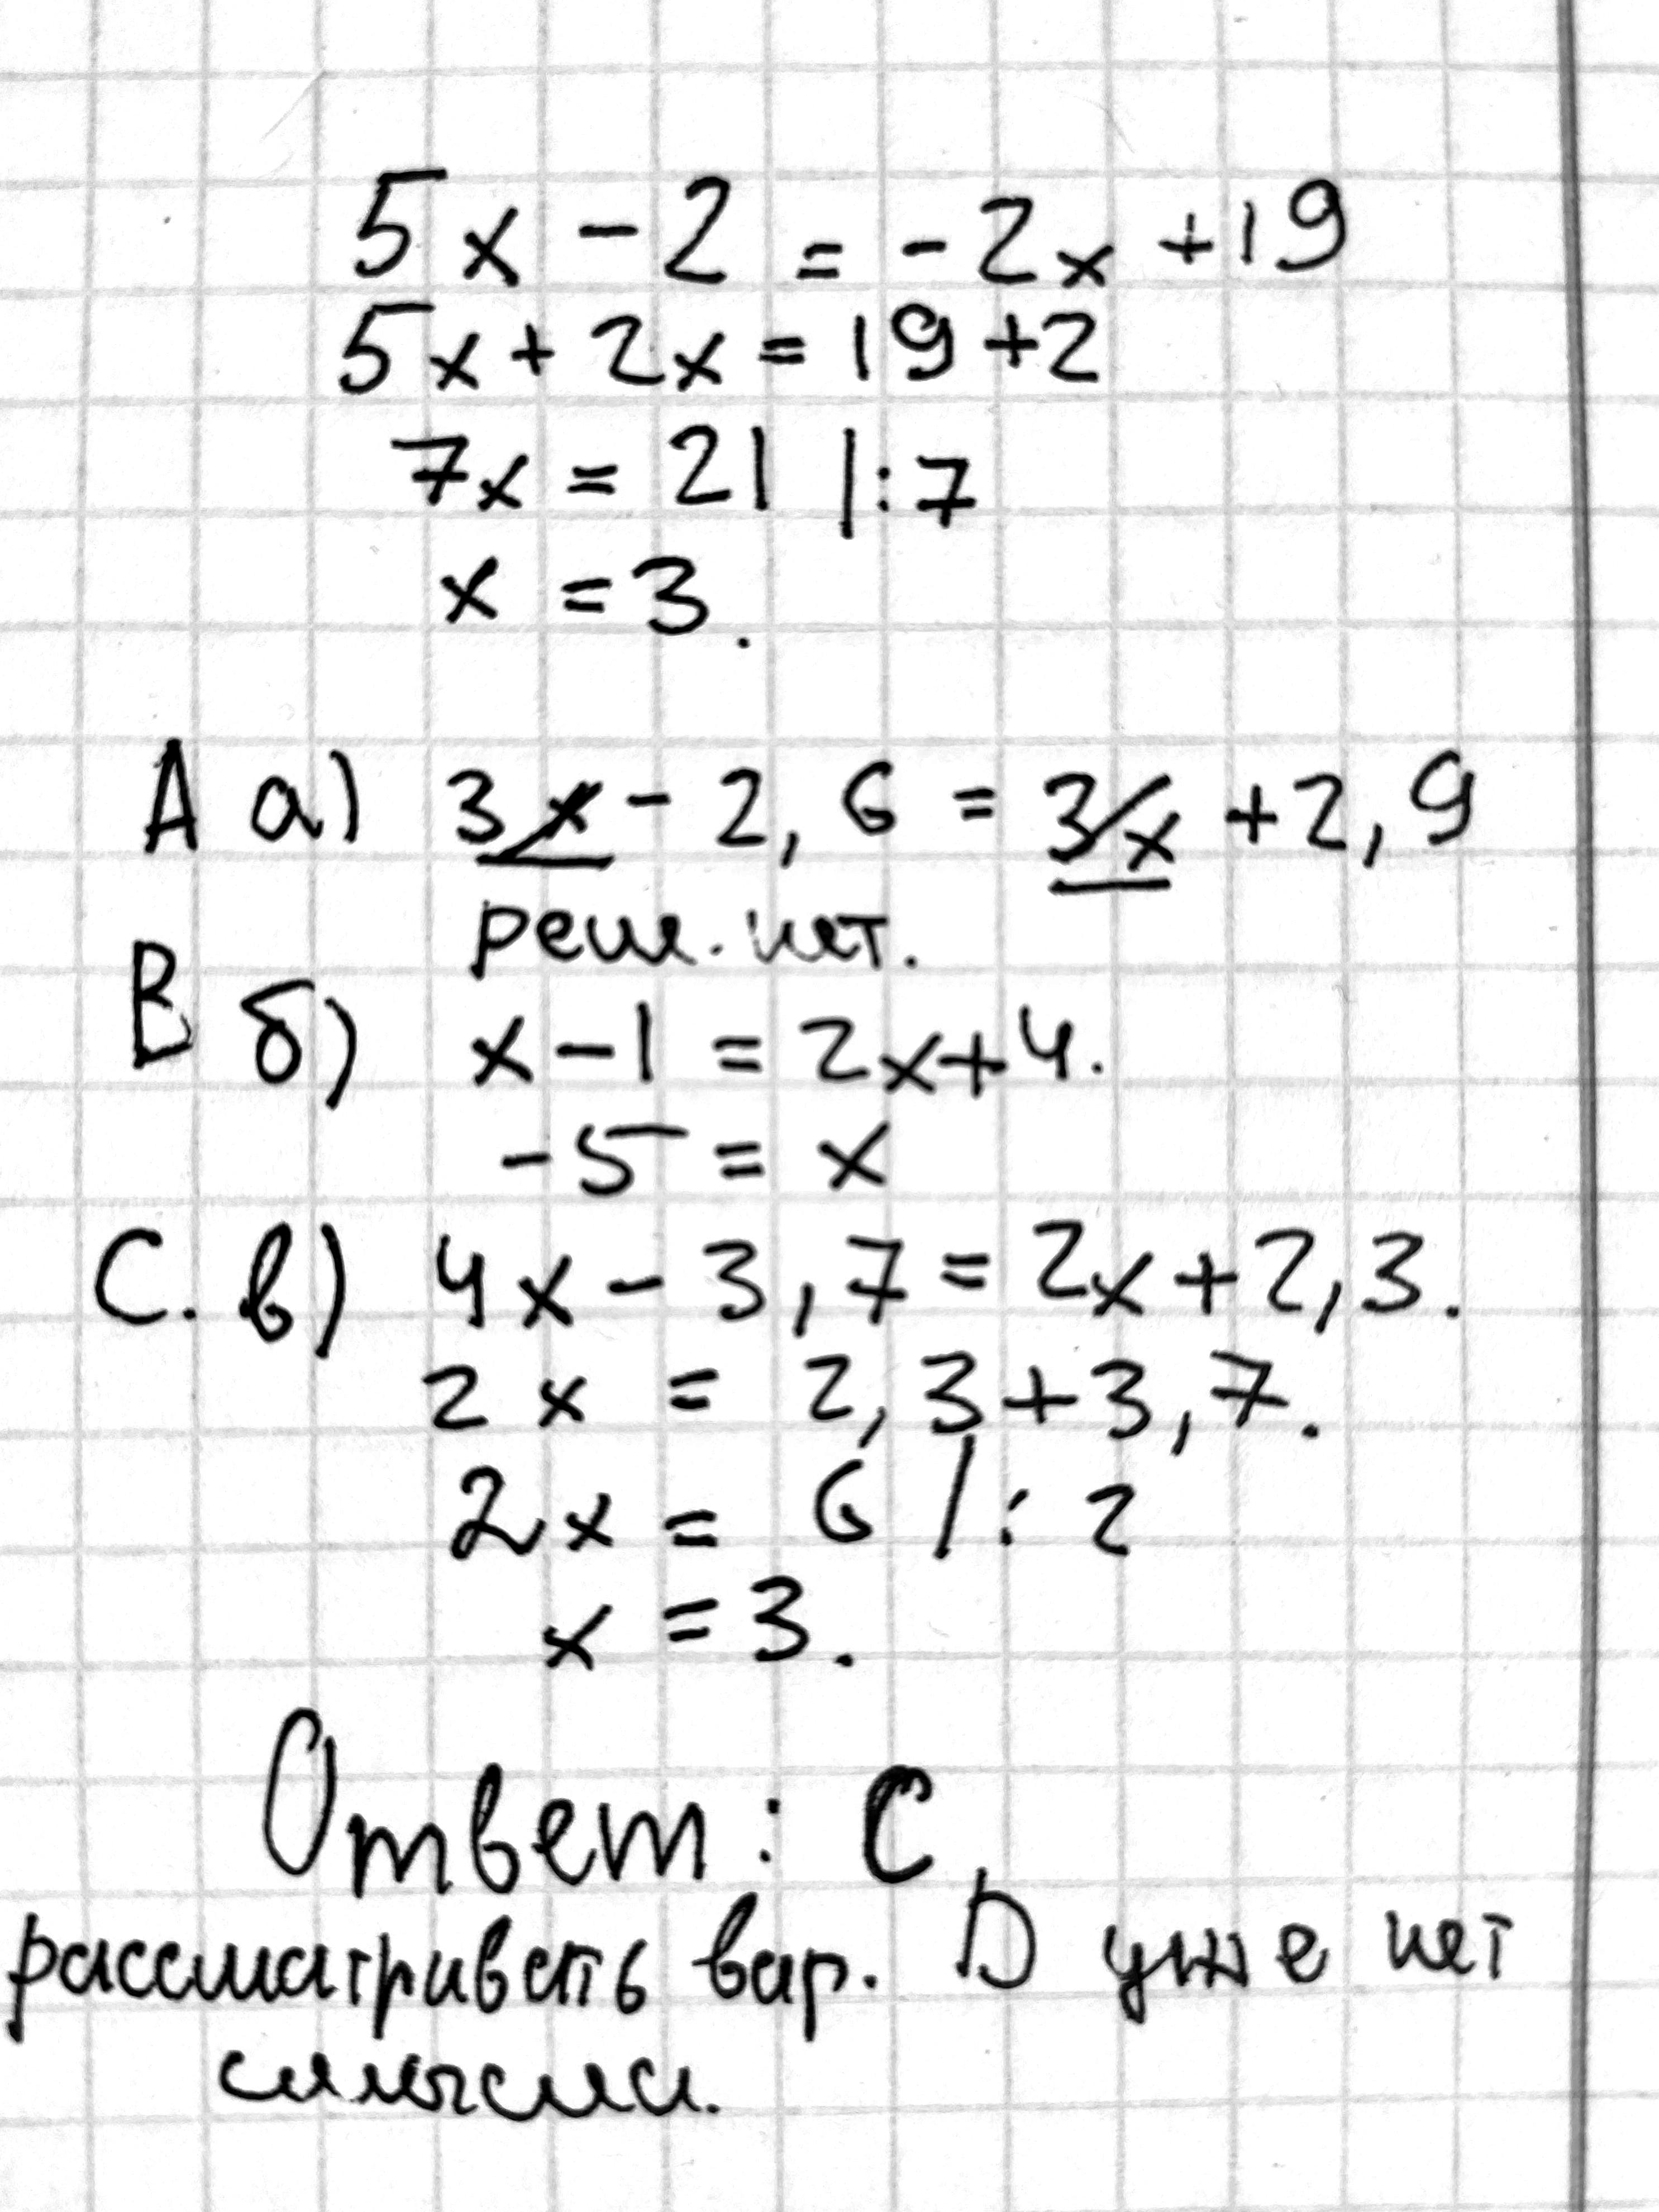 5x - 2 = -2x + 19
5x + 2x = 19 + 2
7x = 21 |:7
x = 3.
A а) 3x - 2,6 = 3x + 2,9
реш. нет.
B б) x - 1 = 2x + 4.
-5 = x
C. в) 4x - 3,7 = 2x + 2,3.
2x = 2,3 + 3,7.
2x = 6 |:2
x = 3.
Ответ: C,
рассматривать вар. D уже нет
смысла.